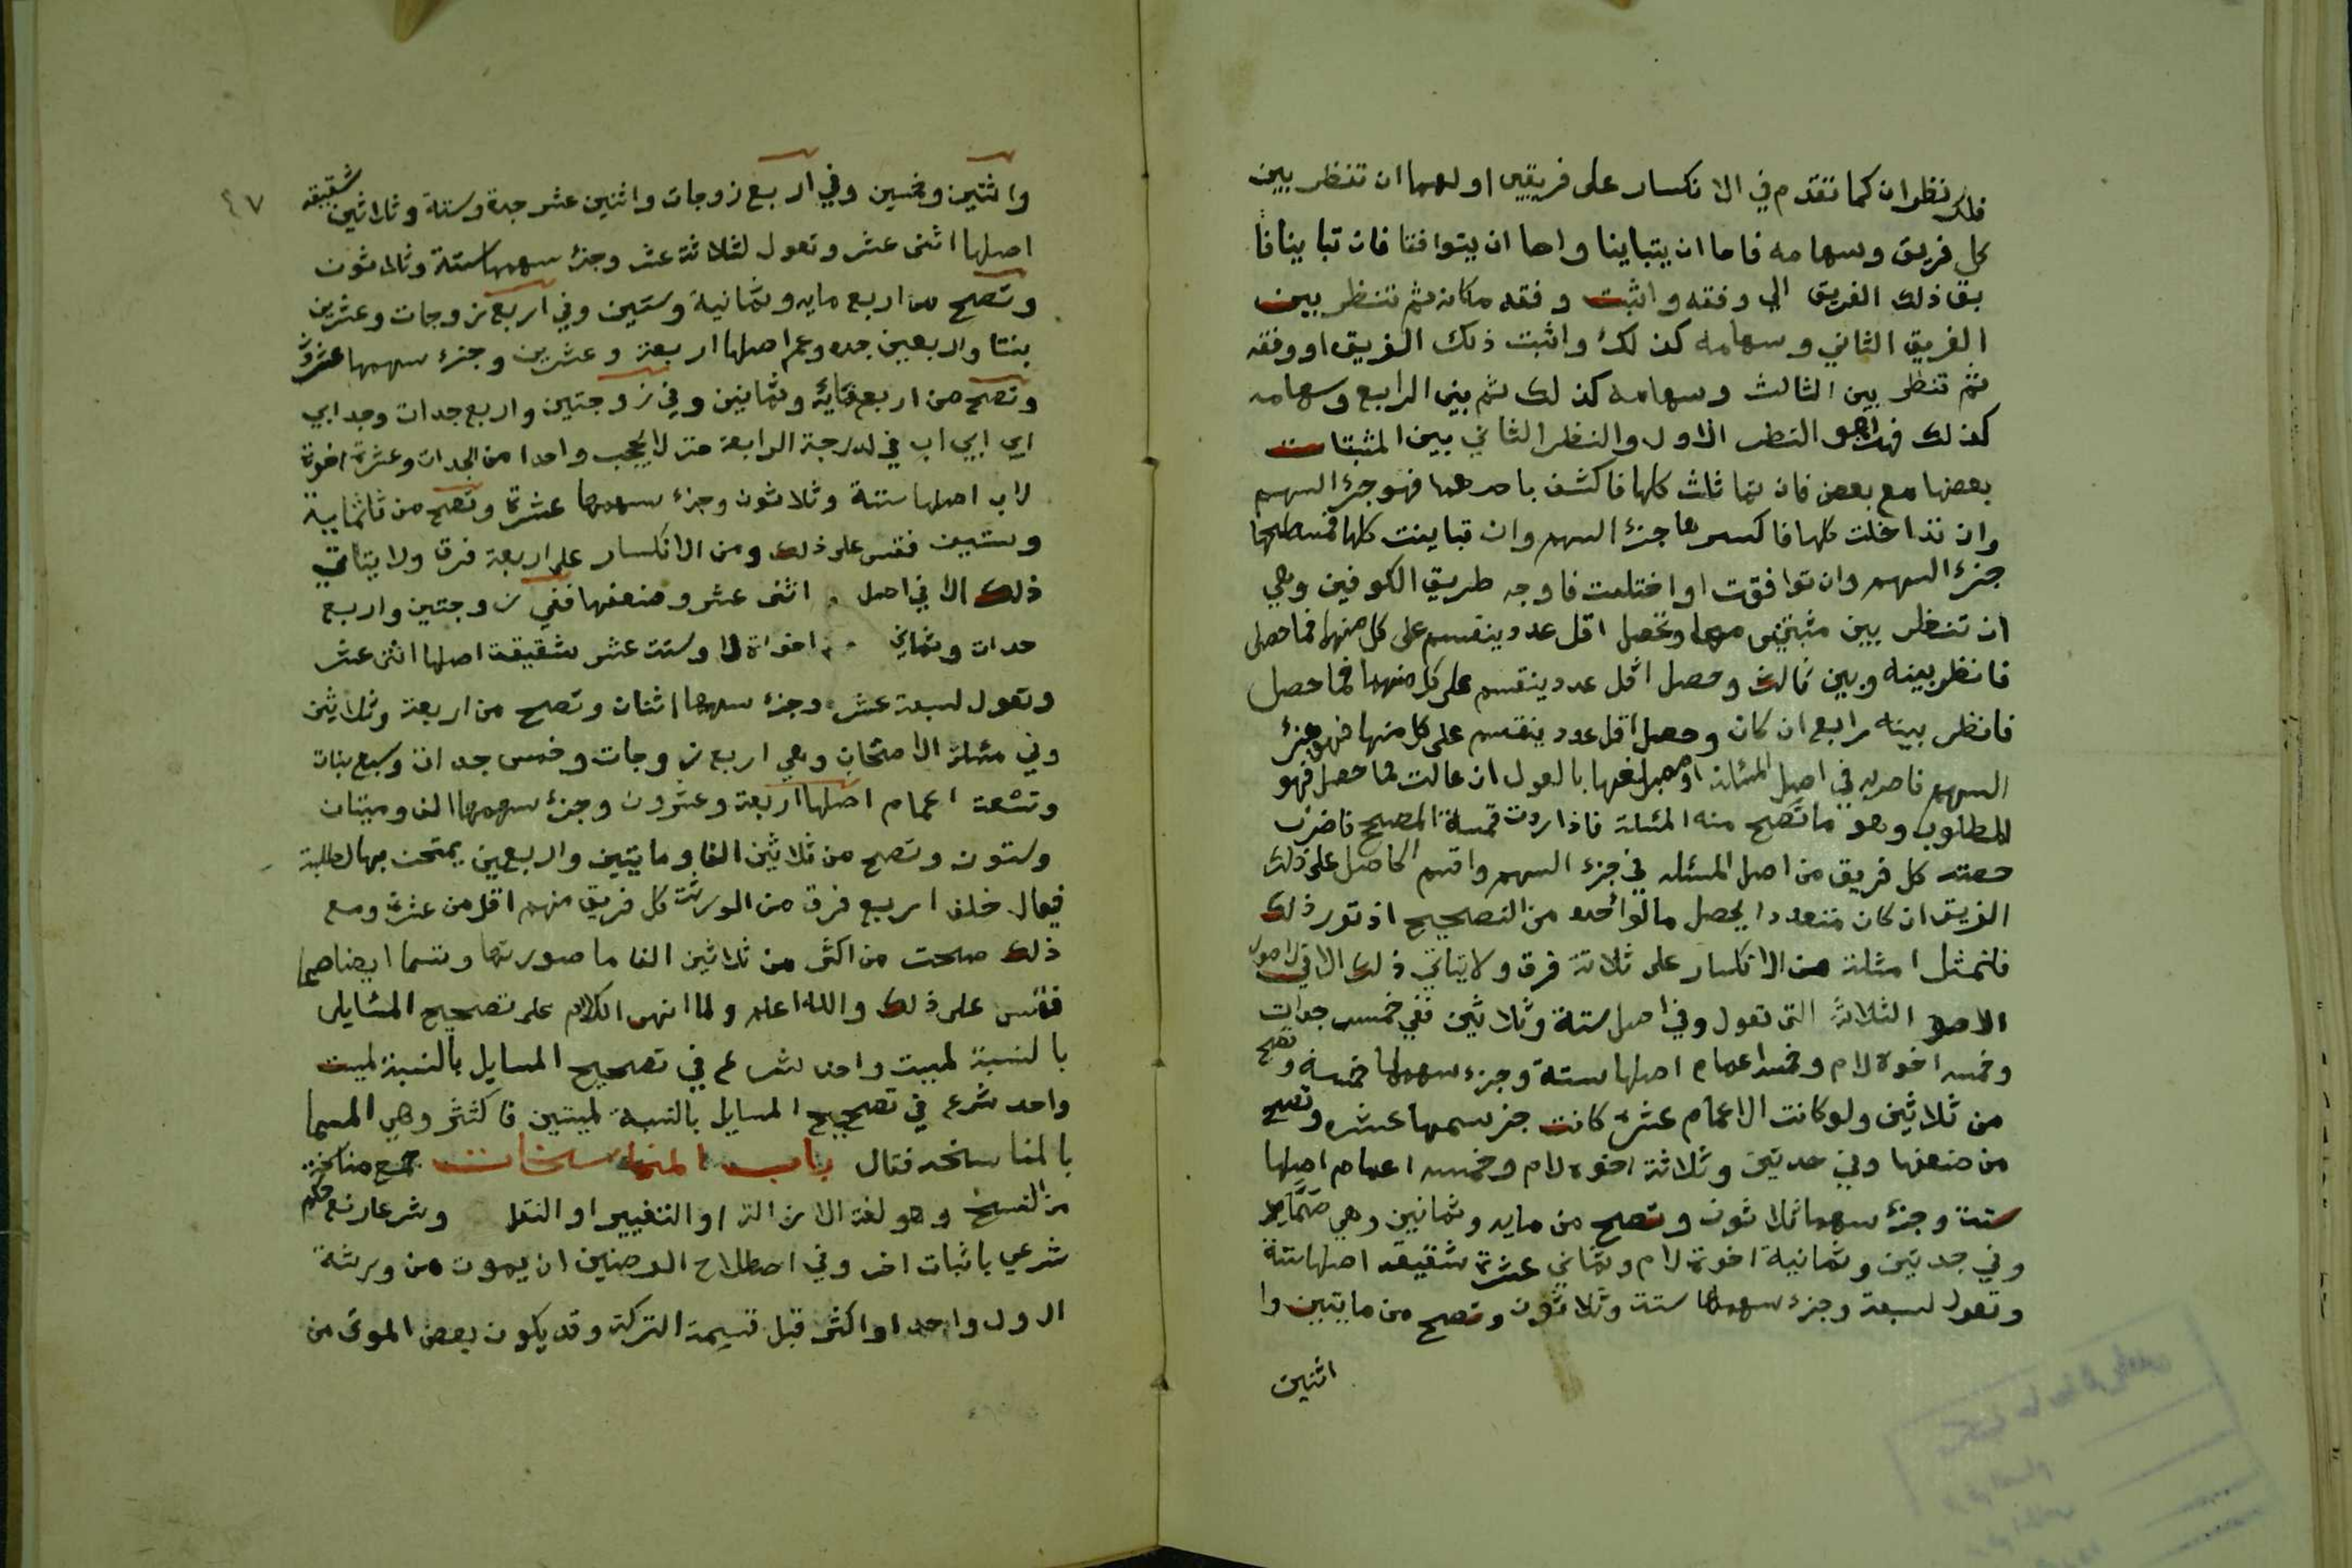 فلك نظران كما تقدم في الانكسار على فريقين اولهما ان تنظر بين
كل فريق وسهامه فاما ان يتباينا واما ان يتوافقا فان تباينا فا
بق ذلك الفريق الي وفقه واثبت وفقه مكانه ثم تنظر بين
الفريق الثاني وسهامه كذلك واثبت ذلك الفريق او وفقه
ثم تنظر بين الثالث وسهامه كذلك ثم بين الرابع وسهامه
كذلك فهذا هو النظر الاول والنظر الثاني بين المثبتات
بعضها مع بعض فان تماثلث كلها فاكتف باحدهما فهو جزء السهم
وان تداخلت كلها فاكبرها جزء السهم وان تباينت كلها فمسطحها
جزء السهم وان توافقت او اختلفت فاوجه طريق الكوفين وهي
ان تنظر بين مثبتين منها وتحصل اقل عدد ينقسم على كل منهما فما حصل
فانظر بينه وبين ثالث وحصل اقل عدد ينقسم على كل منهما فما حصل
فانظر بينه رابع ان كان وحصل اقل عدد ينقسم على كل منها فهو جزء
السهم فاضربه في اصل المسئلة او مبلغها بالعول ان عالت فما حصل فهو
المطلوب وهو ما تصح منه المسئلة فاذا اردت قسمة المصحح فاضرب
حصته كل فريق من اصل المسئله في جزء السهم واقسم الحاصل على ذلك
الفريق ان كان متعددا يحصل ما لواحده من التصحيح اذ تقرر ذلك
فلنمثل امثلة من الانكسار على ثلاثة فرق ولا يتاتي ذلك الا في الاصول
الثلاثة التي تعول وفي اصل ستة وثلاثين ففي خمس جدات
وخمسه اخوة لام وخمسة اعمام اصلها ستة وجزء سهمها خمسة وتصح
من ثلاثين ولو كانت الاعمام عشرة كانت جزء سهمها عشره وتصح
من ضعفها وفي جدتين وثلاثة اخوة لام وخمسه اعمام اصلها
ستة وجزء سهمها ثلاثون وتصح من مايه وثمانين وهي صماء
وفي جدتين وثمانية اخوة لام وثماني عشرة شقيقه اصلها ستة
وتعول لسبعة وجزء سهمها ستة وثلاثون وتصح من مايتين وا
اثنين
٤٧
واثنين وخمسين وفي اربع زوجات واثنين عشر جدة وستة وثلاثين شقيقه
اصلها اثنى عشر وتعول لثلاثة عشر وجزء سهمها ستة وثلاثون
وتصح من اربع مايه وثمانية وستين وفي اربع زوجات وعشرين
بنتا واربعين جده وعم اصلها اربعة وعشرين وجزء سهمها عشرون
وتصح من اربع مائة وثمانين وفي زوجتين واربع جدات وجد ابي
ابي ابي اب في الدرجة الرابعة حتى لا يحجب واحدا من الجدات وعشرة اخوة
لاب اصلها ستة وثلاثون وجزء سهمها عشرة وتصح من ثلثماية
وستين فقس على ذلك ومن الانكسار على اربعة فرق ولا يتاتي
ذلك الا في اصل اثنى عشر وضعفها ففي زوجتين واربع
جدات وثماني اخوات لام وست عشر شقيقة اصلها اثنى عشر
وتعول لسبعة عشر وجزء سهمها اثنان وتصح من اربعة وثلاثين
وفي مسئلة الامتحان وهي اربع زوجات وخمس جدات وسبع بنات
وتسعة اعمام اصلها اربعة وعشرون وجزء سهمها الف وميتان
وستون وتصح من ثلاثين الفا ومايتين واربعين يمتحن بها الطلبة
فيقال خلف اربع فرق من الورثة كل فريق منهم اقل من عشرة ومع
ذلك صحت من اكثر من ثلاثين الفا ما صورتها وتسما ايضا صما
فقس على ذلك والله اعلم ولما انهى الكلام على تصحيح المسايل
بالنسبة لميت واحد شرع في تصحيح المسايل بالنسبة لميت
واحد شرع في تصحيح المسايل بالنسبة لميتين فاكثر وهي المسما
بالمناسخه فقال باب المناسخات جمع مناسخة
من النسخ وهو لغة الازالة او التغيير او النقل وشرعا رفع حكم
شرعي باثبات اخر وفي اصطلاح الفرضين ان يموت من ورثة
الاول واحد او اكثر قبل قسمة التركة وقد يكون بعض الموتى من